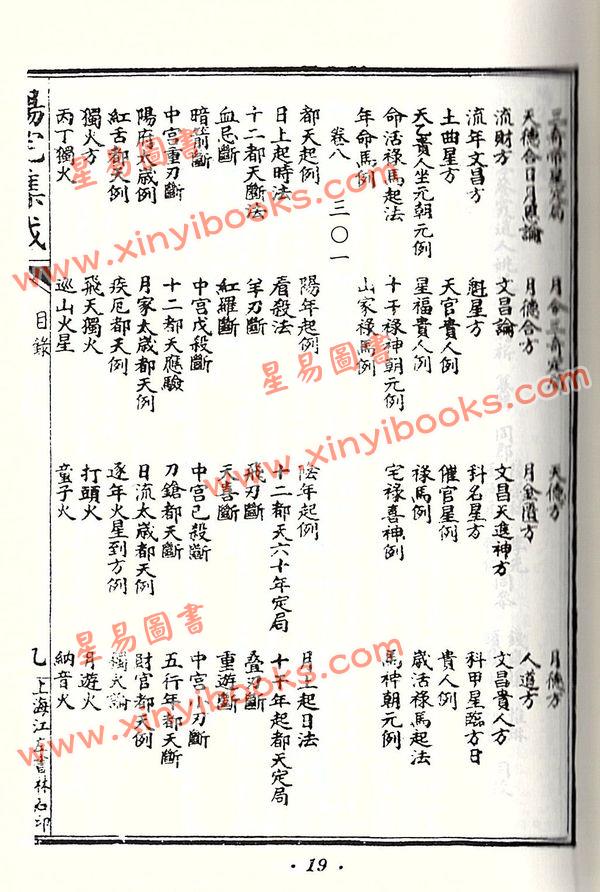 三奇帝星 局　月令三奇定　天德方　月德方
天德合日月 論　月德合方　月金匱方　人道方
流財方　文昌論　文昌天進神方　文昌貴人方
流年文昌方　魁星方　科名星方　科甲星臨方日
土曲星方　天官貴人例　催官星例　貴人例
天乙貴人坐元朝元例　星福貴人例　祿馬例　歲活祿馬起法
命活祿馬起法　十干祿神朝元例　宅祿喜神例　馬神朝元例
年命馬例　山家祿馬例
卷八　三〇一
都天起例　陽年起例　陰年起例　月上起日法
日上起時法　看殺法　十二都天六十年定局　十干年起都天定局
十二都天斷法　羊刃斷　飛刃斷　疊刃斷
血忌斷　紅羅斷　天喜斷　重遊斷
暗箭斷　中宮戊殺斷　中宮己殺斷　中宮小刃斷
中宮重刃斷　十二都天應驗　刀鎗都天斷　五行年都天斷
陽府太歲例　月家太歲都天例　日流太歲都天例　財官都天例
紅舌都天例　疾厄都天例　逐年火星到方例　獨火論
獨火方　飛天獨火　打頭火　月遊火
丙丁獨火　巡山火星　童子火　納音火
陽宅集成　目錄　乙　上海江左書林石印
·19·
星易圖書
www.xinyibooks.com
星易圖書
www.xinyibooks.com
星易圖書
www.xinyibooks.com
星易圖書
www.xinyibooks.com